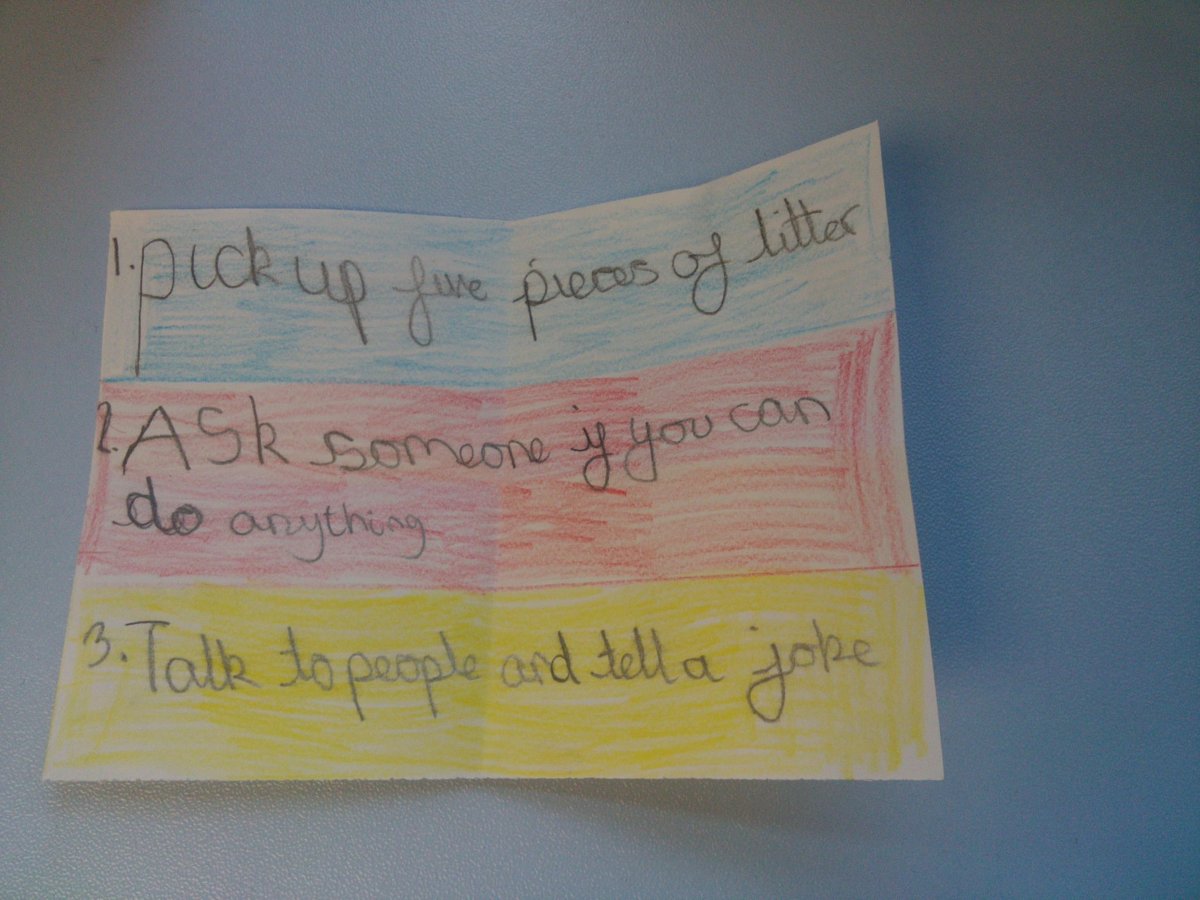 1. Pick up five pieces of litter
2. ASk someone if you can
do anything
3. Talk to people and tell a joke